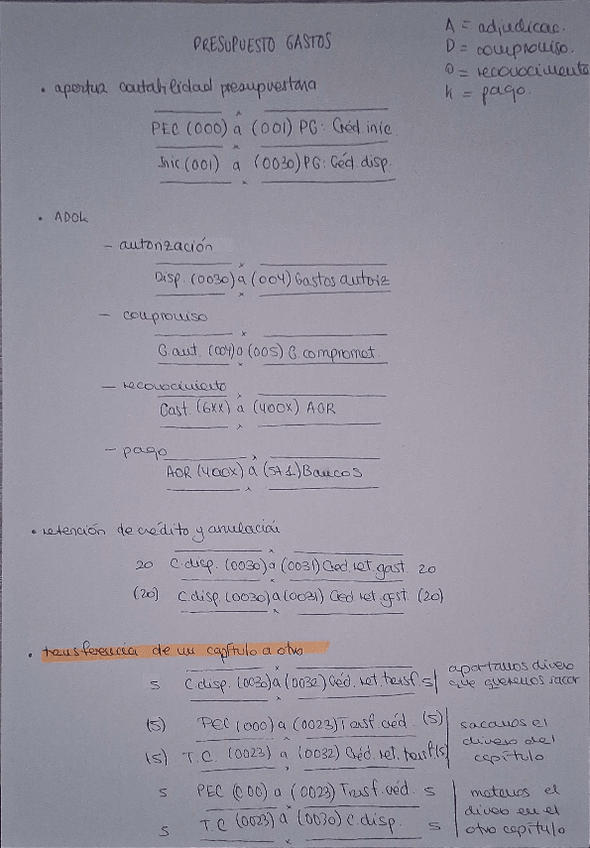 PRESUPUESTO GASTOS
A = adjudicac.
D = compromiso.
O = reconocimiento
K = pago.
• apertura contabilidad presupuestaria
PEC (000) a (001) PG: Créd inic.
Inic (001) a (0030) PG: Créd. disp.
• ADOK
- autorización
Disp. (0030) a (004) Gastos autoriz
- compromiso
G. aut. (004) a (005) G. compromet.
- reconocimiento
Gast. (6XX) a (400X) AOR
- pago
AOR (400X) a (571) Bancos
• retención de crédito y anulación
20 C. disp. (0030) a (0031) Créd ret. gast. 20
(20) C. disp. (0030) a (0031) Créd ret. gast. (20)
• transferencia de un capítulo a otro
5 C. disp. (0030) a (0032) Créd. ret. transf. 5 | apartamos dinero
que queremos sacar
(5) PEC (000) a (0023) Transf créd. (5) | sacamos el
dinero del
(5) T.C. (0023) a (0032) Créd. ret. transf (5) | capítulo
5 PEC (000) a (0023) Transf. créd. 5 | metemos el
dinero en el
5 T.C (0023) a (0030) C. disp. 5 | otro capítulo